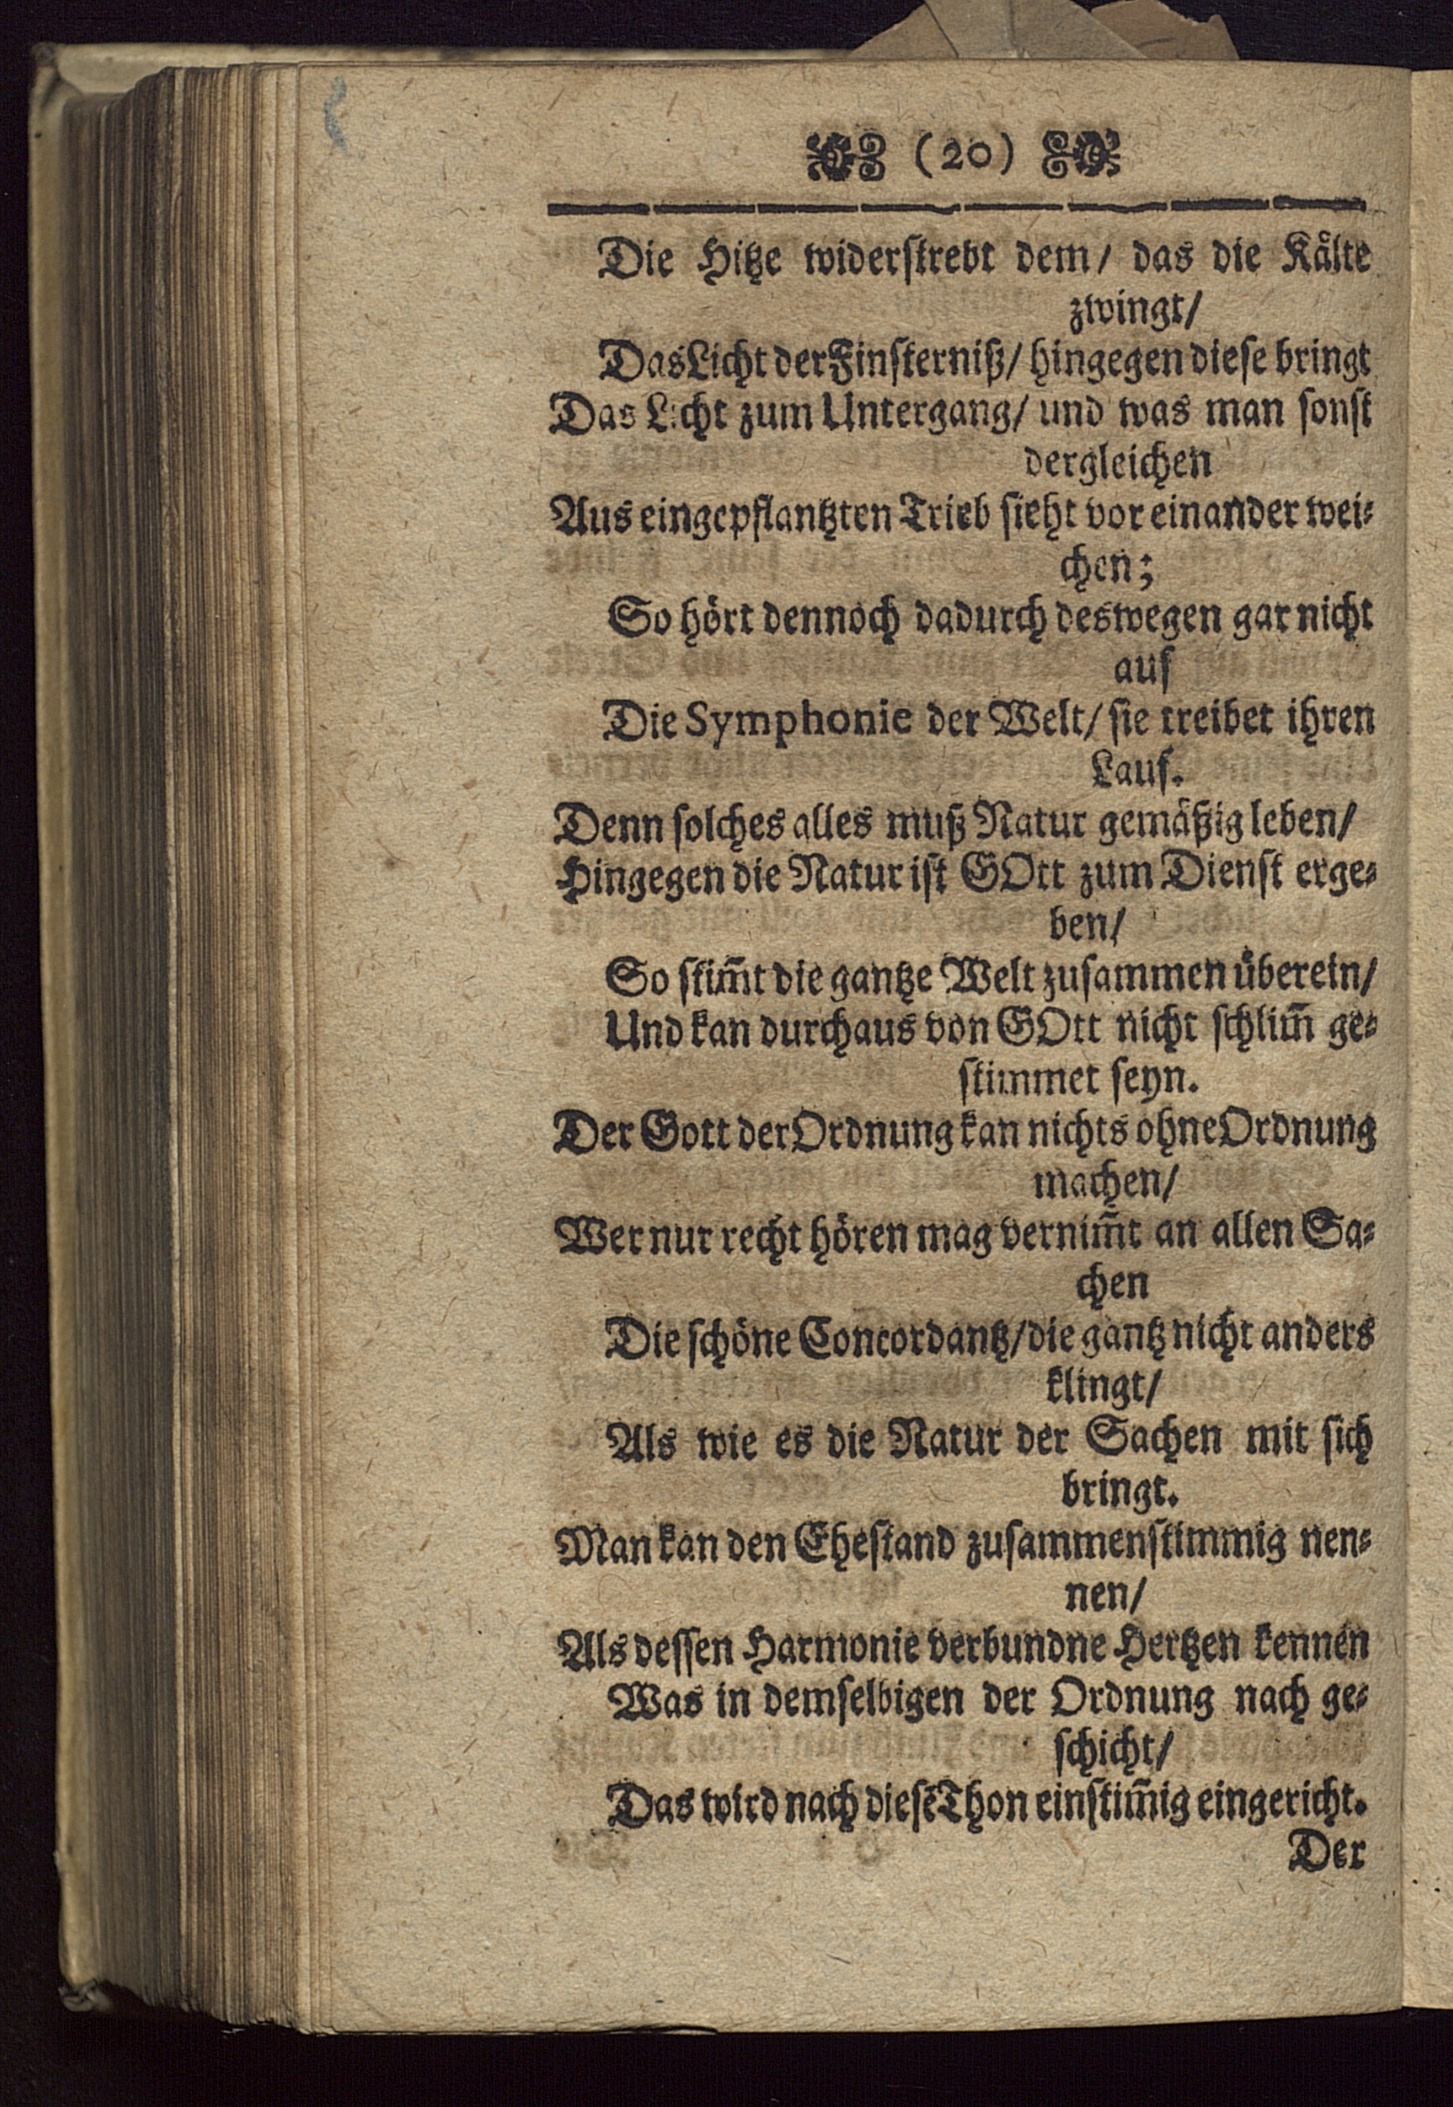 (20)
Die Hitze widerstrebt dem/ das die Kälte
zwingt/
Das Licht der Finsterniß/ hingegen diese bringt
Das Licht zum Untergang/ und was man sonst
dergleichen
Aus eingepflantzten Trieb sieht vor einander wei-
chen;
So hört dennoch dadurch deswegen gar nicht
auf
Die Symphonie der Welt/ sie treibet ihren
Lauf.
Denn solches alles muß Natur gemäßig leben/
Hingegen die Natur ist GOtt zum Dienst erge-
ben/
So stim̃t die gantze Welt zusammen überein/
Und kan durchaus von GOtt nicht schlim̃ ge-
stimmet seyn.
Der Gott der Ordnung kan nichts ohne Ordnung
machen/
Wer nur recht hören mag vernim̃t an allen Sa-
chen
Die schöne Concordantz/ die gantz nicht anders
klingt/
Als wie es die Natur der Sachen mit sich
bringt.
Man kan den Ehestand zusammenstimmig nen-
nen/
Als dessen Harmonie verbundne Hertzen kennen
Was in demselbigen der Ordnung nach ge-
schicht/
Das wird nach diesẽ Thon einstim̃ig eingericht.
Der